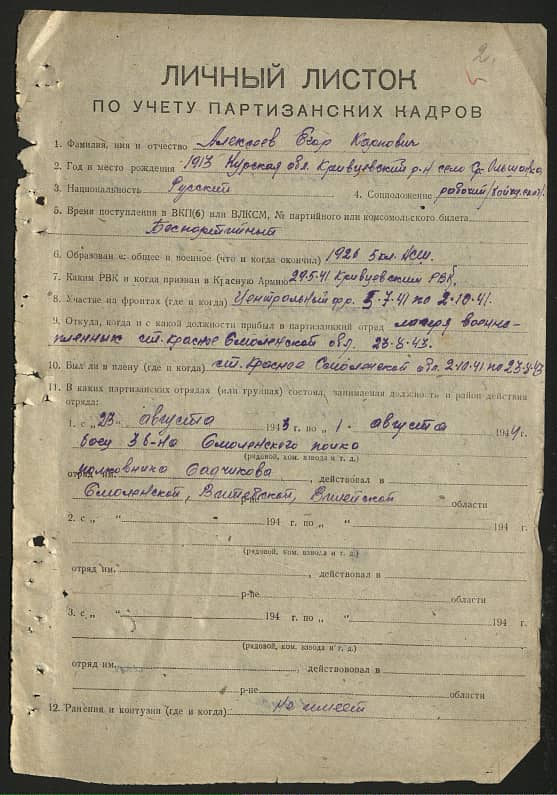 2.
ЛИЧНЫЙ ЛИСТОК
ПО УЧЕТУ ПАРТИЗАНСКИХ КАДРОВ
1. Фамилия, имя и отчество Алексеев Егор Карпович
2. Год и место рождения 1913 Курская обл. Кривцовский р-н село
3. Национальность Русский 4. Соцположение рабочий
5. Время поступления в ВКП(б) или ВЛКСМ, № партийного или комсомольского билета
Беспартийный
6. Образован е: общее и военное (что и когда окончил) 1926 5 кл. НСШ.
7. Каким РВК и когда призван в Красную Армию 29.5.41 Кривцовским РВК.
8. Участие на фронтах (где и когда) Центральный фр. 5-7-41 по 2-10-41.
9. Откуда, когда и с какой должности прибыл в партизанкий отряд лагеря военно-
пленных ст. Красное Смоленской обл. 23-8-43.
10. Был ли в плену (где и когда) ст. Красное Смоленской обл. 2-10-41 по 23-8-43
11. В каких партизанских отрядах (или группах) состоял, занимаемая должность и район действия
отряда:
1. с „23" августа 1943 г. по „1" августа 1944 г.
боец 3 б-на Смоленского полка
(рядовой, ком. взвода и т. д.)
полковника Садчикова
отряд им. , действовал в
Смоленской, Витебской, Вилейской
р-не области
2. с „ " 194 г. по „ " 194 г.
(рядовой, ком. взвода и т. д.)
отряд им. , действовал в
р-не области
3. с „ " 194 г. по „ " 194 г.
(рядовой, ком. взвода и т. д.)
отряд им. , действовал в
р-не области
12. Ранения и контузии (где и когда) Не имеет